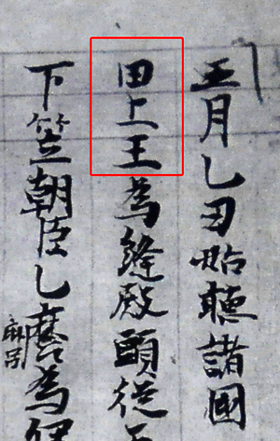 五月乙丑始聴諸國
田上王為縫殿頭従五
下笠朝臣乙麿為伊
麻呂